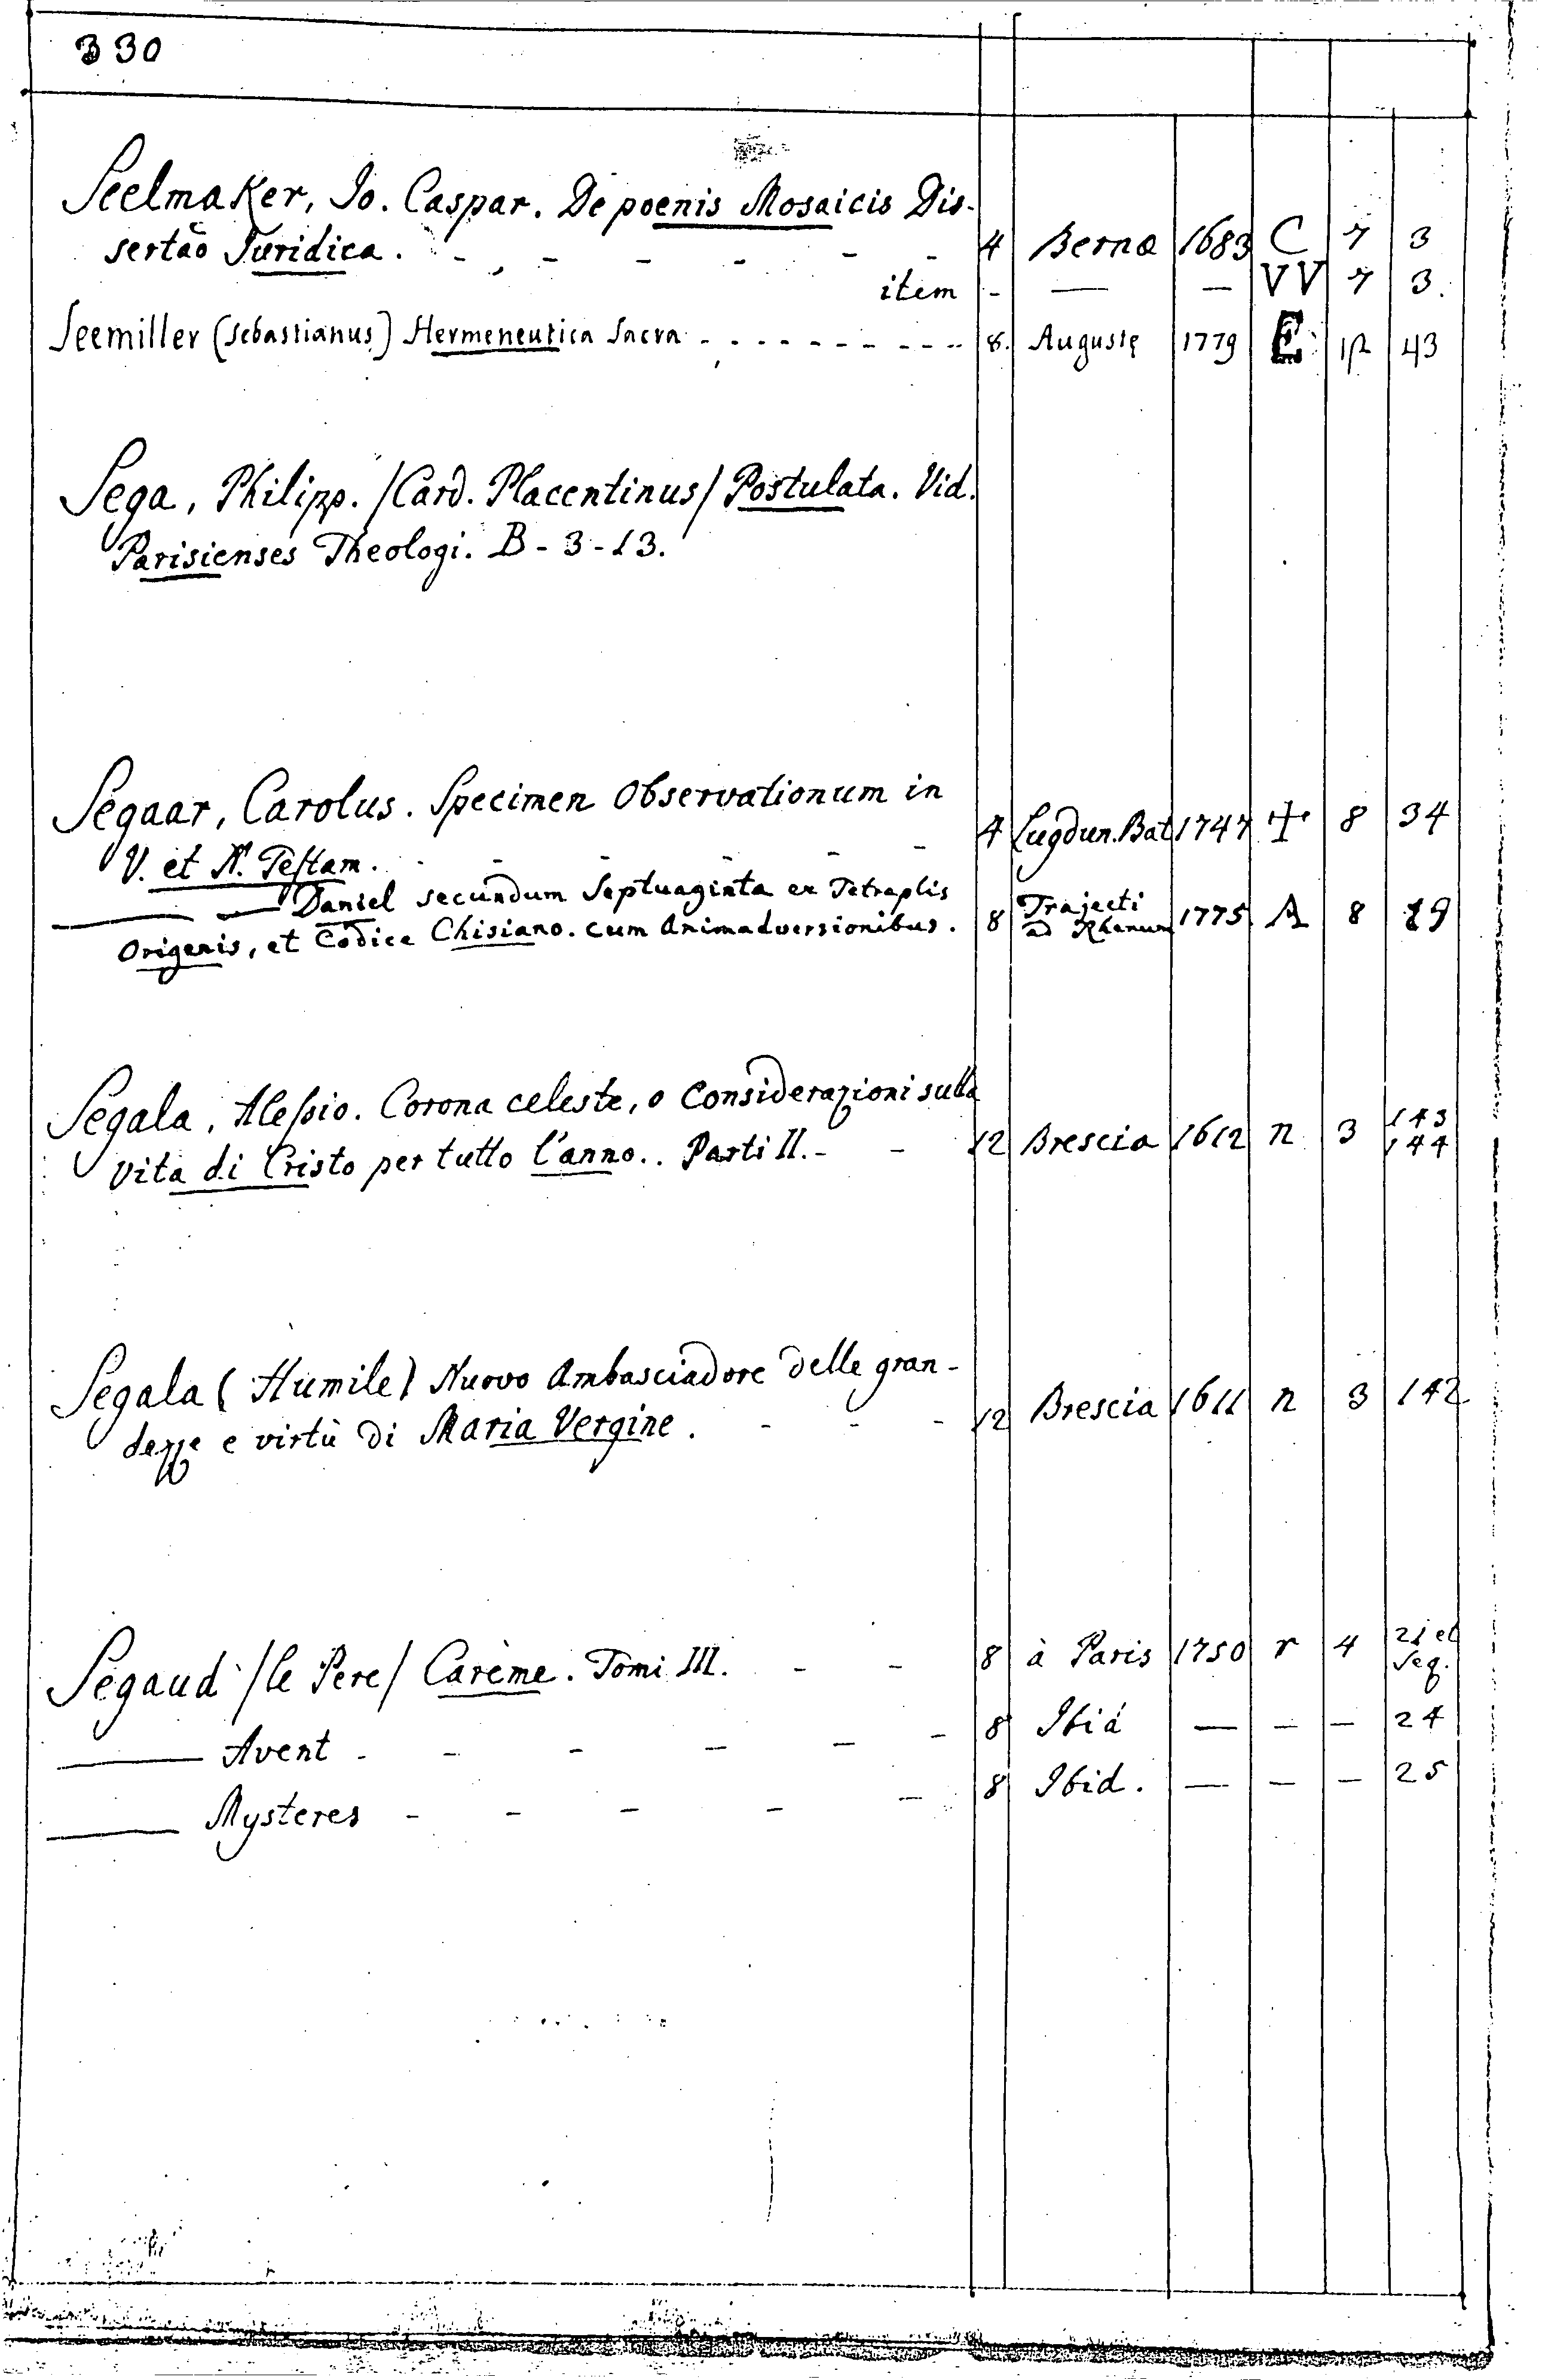 330
Seelmaker, Jo. Caspar. De poenis Mosaicis Dis-
sertão Juridica. - - - - - - 4 Bernæ 1683 C 7 3
item - — — VV 7 3.
Seemiller (Sebastianus) Hermeneutica Sacra - - - - - - - - - - 8. Augustę 1779 E 12 43
Sega, Philipp. /Card. Placentinus/ Postulata. Vid.
Parisienses Theologi. B - 3 - 13.
Segaar, Carolus. Specimen Observationum in
V. et N. Testam. - - - - - - 4 Lugdun. Bat 1747 + 8 34
— — Daniel secundum Septuaginta ex Tetraplis
Origenis, et Codice Chisiano. cum Animadversionibus. 8 Trajecti ad Rhenum 1775 A 8 19
Segala, Alessio. Corona celeste, o Considerazioni sulla
vita di Cristo per tutto l'anno.. Parti II. - - 12 Brescia 1612 n 3 143 144
Segala (Humile) Nuovo Ambasciadore delle gran-
dezze e virtù di Maria Vergine. - - - 12 Brescia 1611 n 3 142
Segaud /le Pere/ Carème. Tomi III. - - 8 à Paris 1750 r 4 21 et seq.
— Avent - - - - - - 8 Ibid — — — 24
— Mysteres - - - - - 8 Ibid. — — — 25